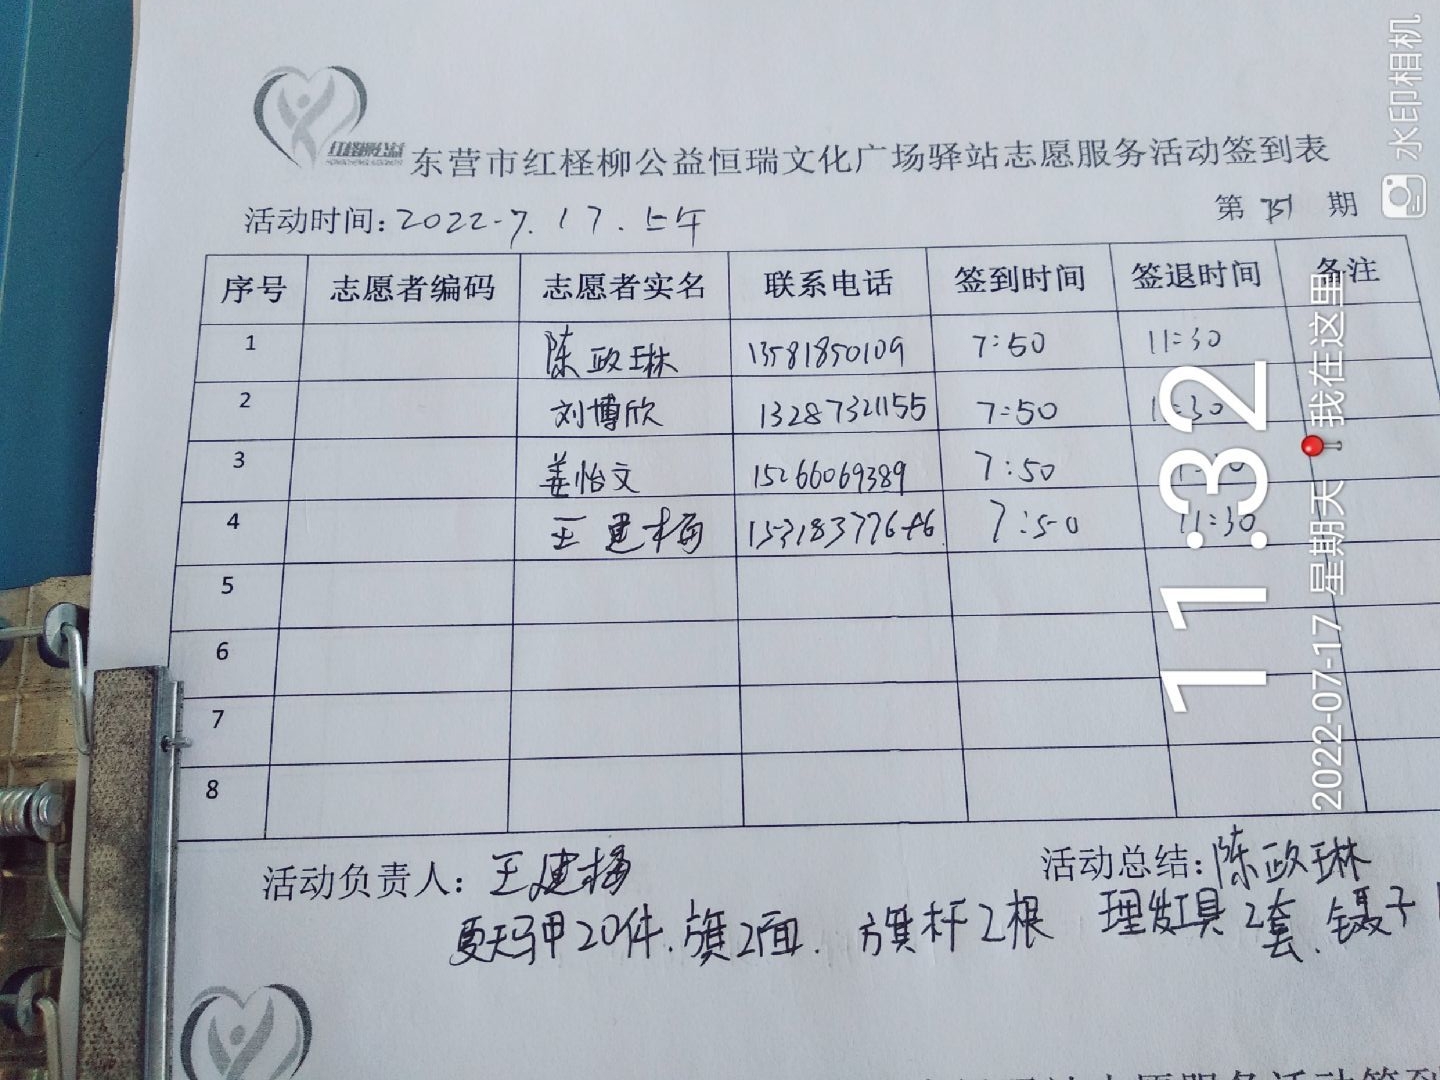 红柽柳公益
东营市红柽柳公益恒瑞文化广场驿站志愿服务活动签到表
活动时间:2022-7.17.上午 第 751 期
序号 志愿者编码 志愿者实名 联系电话 签到时间 签退时间 备注
1 陈政琳 13581850109 7:50 11:30
2 刘博欣 13287321155 7:50 11:30
3 姜怡文 15266069389 7:50
4 王建梅 7:50 11:30
5
6
7
8
活动负责人: 王建梅 活动总结:陈政琳
夏天马甲20件.旗2面. 旗杆2根 理发工具2套.镊子
水印相机
11:32
2022-07-17 星期天 我在这里